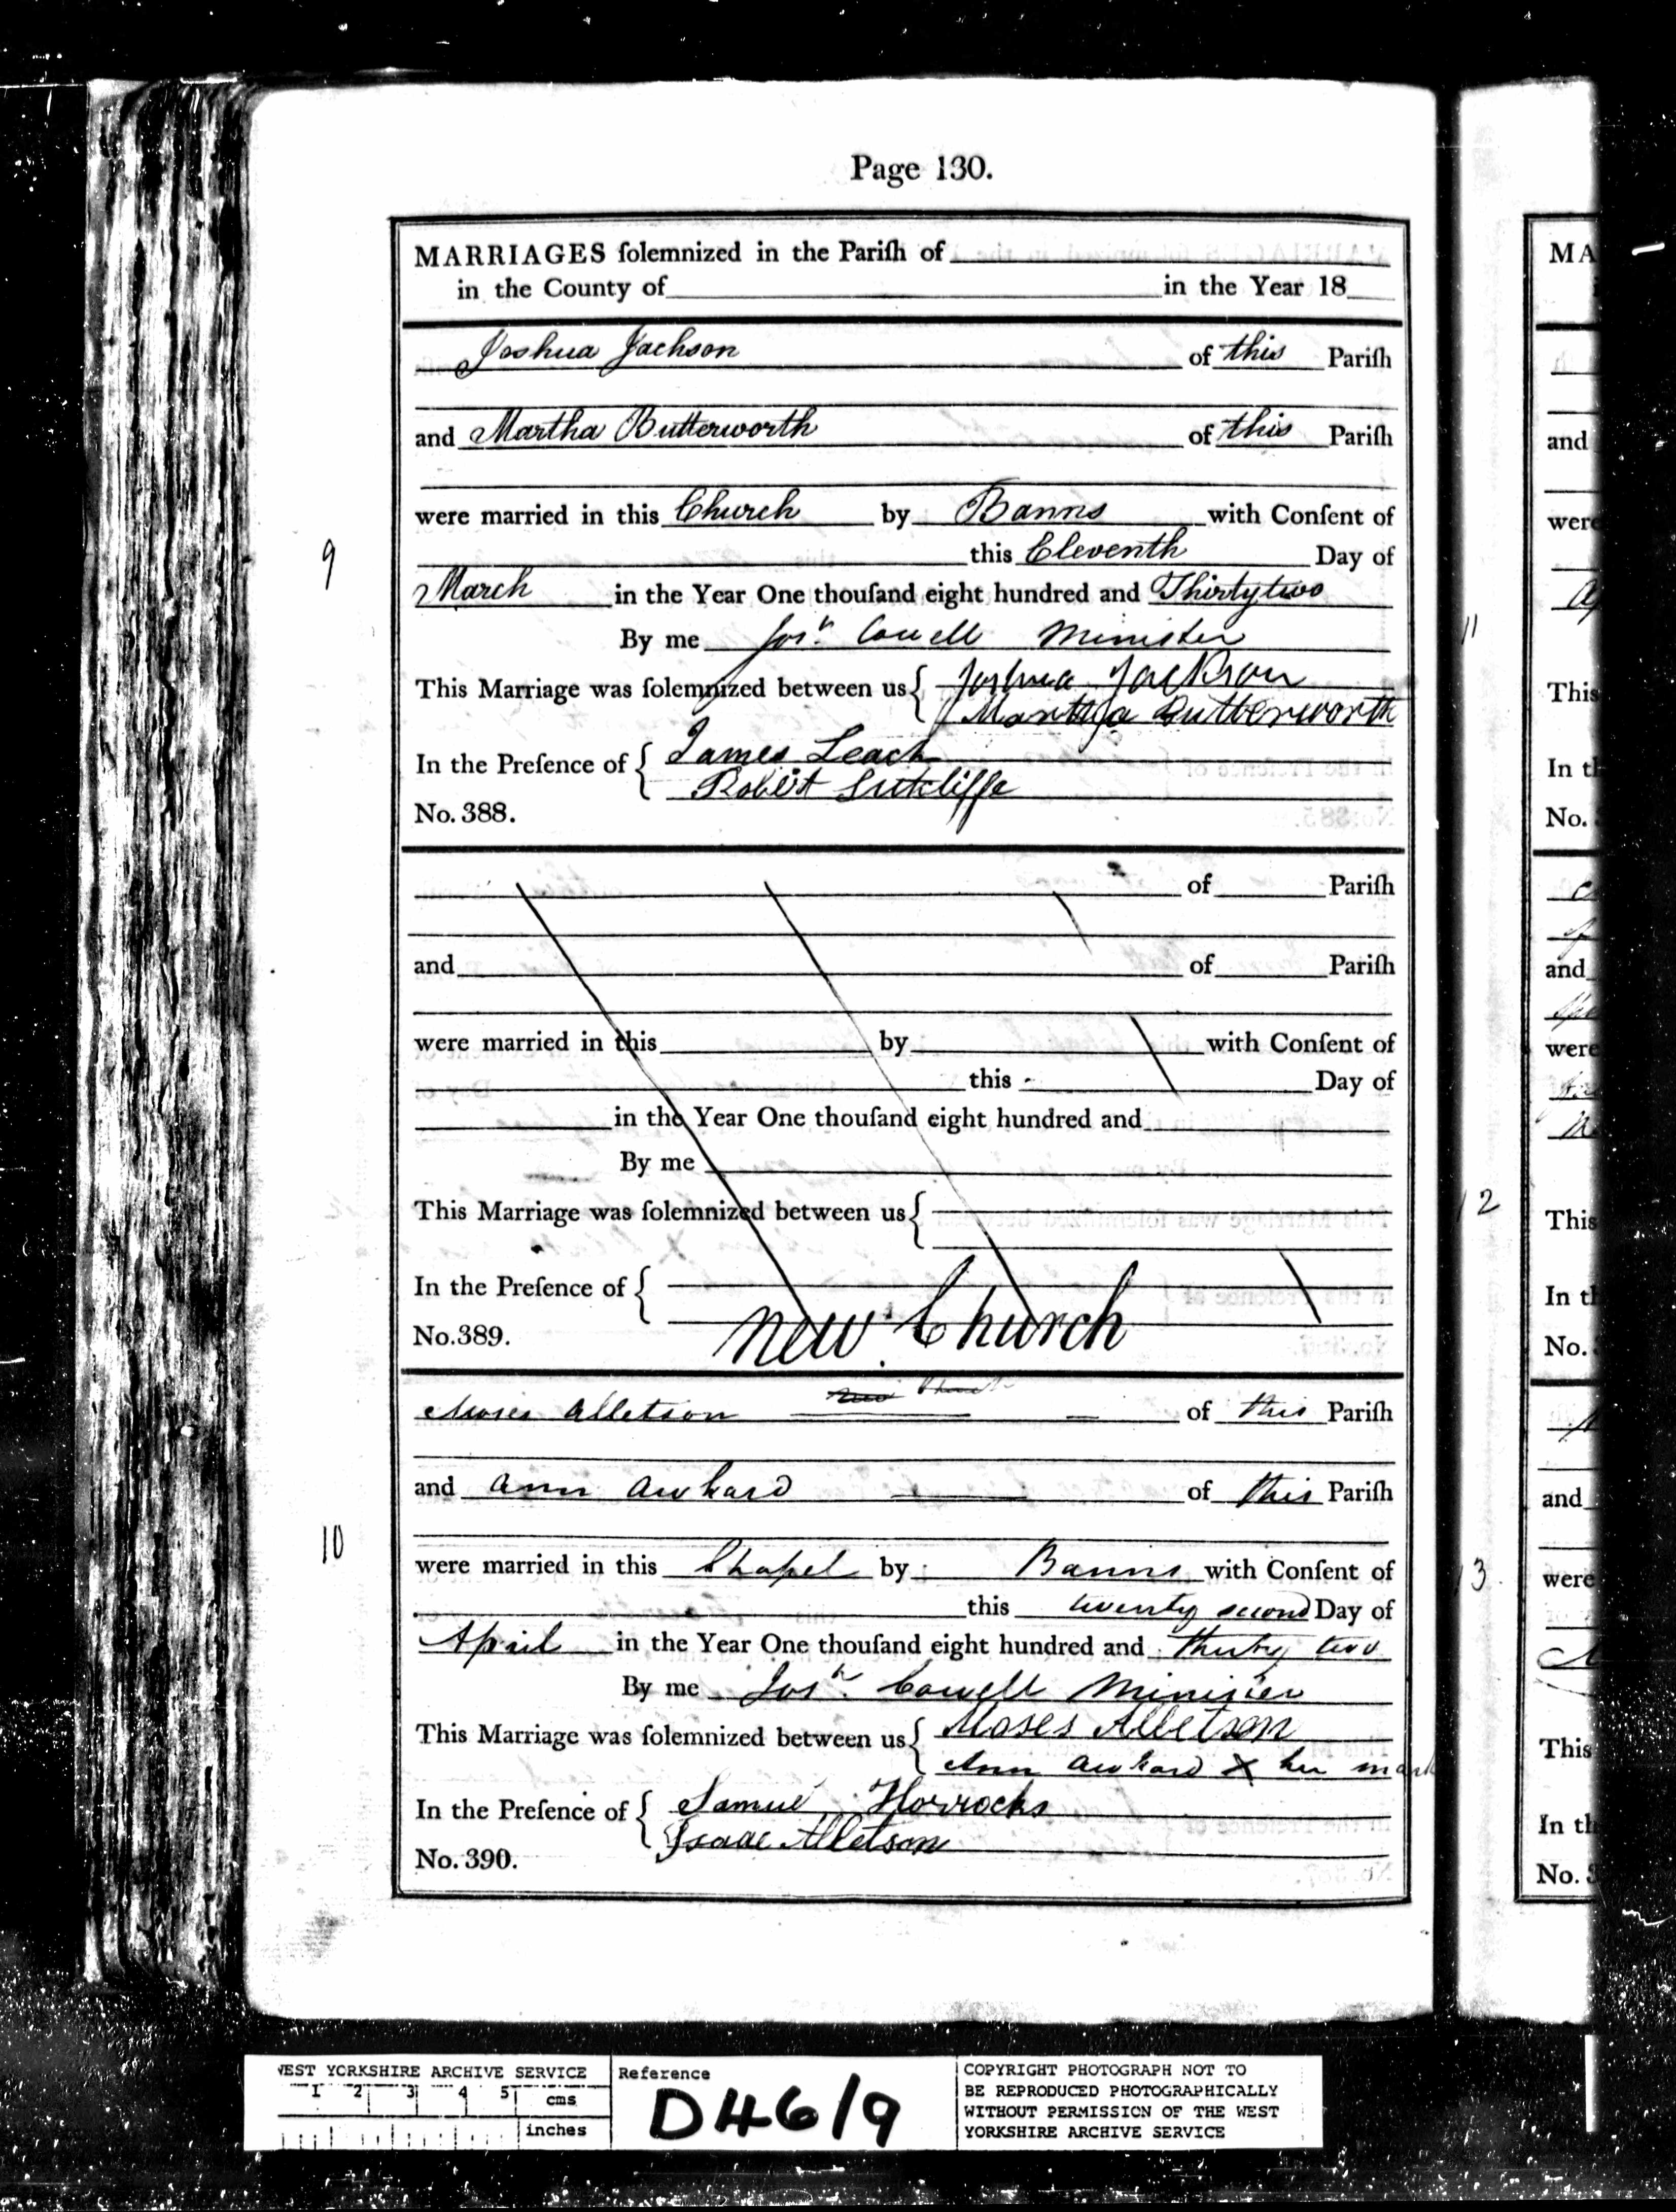 Page 130.
MARRIAGES ſolemnized in the Pariſh of
in the County of in the Year 18
Joshua Jackson of this Pariſh
and Martha Butterworth of this Pariſh
were married in this Church by Banns with Conſent of
this Eleventh Day of
9
March in the Year One thouſand eight hundred and Thirty two
By me Josh. Cowell Minister
This Marriage was ſolemnized between us { Joshua Jackson
Martha Butterworth
In the Preſence of { James Leach
Robert Sutcliffe
No. 388.
of Pariſh
and of Pariſh
were married in this by with Conſent of
this Day of
in the Year One thouſand eight hundred and
By me
This Marriage was ſolemnized between us {
In the Preſence of {
No. 389. New Church
Moses Alletson of this Pariſh
and Ann Awkard of this Pariſh
10
were married in this Chapel by Banns with Conſent of
this twenty second Day of
April in the Year One thouſand eight hundred and thirty two
By me Josh. Cowell Minister
This Marriage was ſolemnized between us { Moses Alletson
Ann Awkard X her mark
In the Preſence of { Samuel Horrocks
Isaac Alletson
No. 390.
MA
and
were
11
This
In th
No.
and
were
12
This
In th
No.
and
13
were
This
In th
No. 3
WEST YORKSHIRE ARCHIVE SERVICE
1 2 3 4 5 cms
inches
Reference
D46/9
COPYRIGHT PHOTOGRAPH NOT TO
BE REPRODUCED PHOTOGRAPHICALLY
WITHOUT PERMISSION OF THE WEST
YORKSHIRE ARCHIVE SERVICE